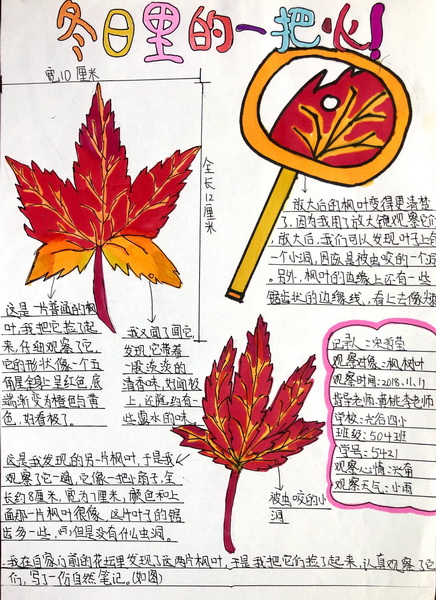 冬日里的一把火!
宽10厘米
全长12厘米
放大后的枫叶变得更清楚
了,因为我用了放大镜观察它们
放大后,我们可以发现叶子上有
一个小洞,因应是被虫咬的一个
另外,枫叶的边缘上还有一些
锯齿状的边缘线,看上去像
这是一片普通的枫
叶,我把它捡了起
来,仔细观察了它,
它的形状像一个五
角星,全身上呈红色,底
端渐变为橙色与黄
色,好看极了。
我又闻了闻它,
发现它带着
一股淡淡的
清香味,好闻极
上,还隐约有一
些露水的味
记录人:
观察对象:枫树叶
观察时间:2018.11.11
指导老师:黄桃李老师
学校:六合四小
班级:504班
学号:5421
观察心情:兴奋
观察天气:小雨
这是我发现的另一片枫叶,于是我
观察了它一遍,它像一把小扇子,全
长约8厘米,宽为7厘米,颜色和上
面那一片枫叶很像,这片叶子的锯
齿多一些,但是没有什么虫洞。
被虫咬的小
洞
我在自家门前的花坛里发现了这两片枫叶,于是我把它们捡了起来,认真观察了它
们,写了一份自然笔记。(如图)